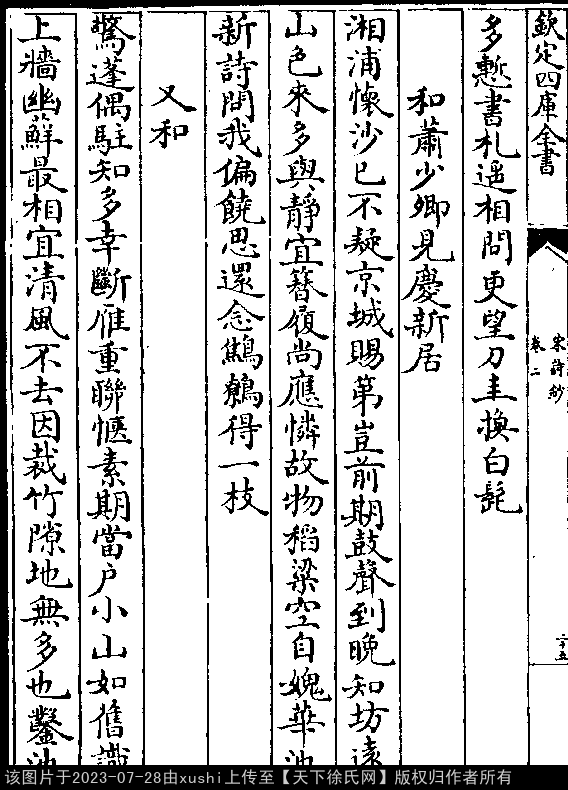 欽定四庫全書
宋詩鈔
卷二
二十五
多慙書札遥相問更望刀圭換白髭
和蕭少卿見慶新居
湘浦懐沙已不疑京城賜第豈前期鼓聲到晚知坊逺
山色來多與静宜簪履尚應憐故物稻粱空自媿華池
新詩問我偏饒思還念鷦鷯得一枝
又和
驚蓬偶駐知多幸斷雁重聯愜素期當户小山如舊識
上牆幽蘚最相宜清風不去因栽竹隙地無多也鑿池
该图片于2023-07-28由xushi上传至【天下徐氏网】版权归作者所有